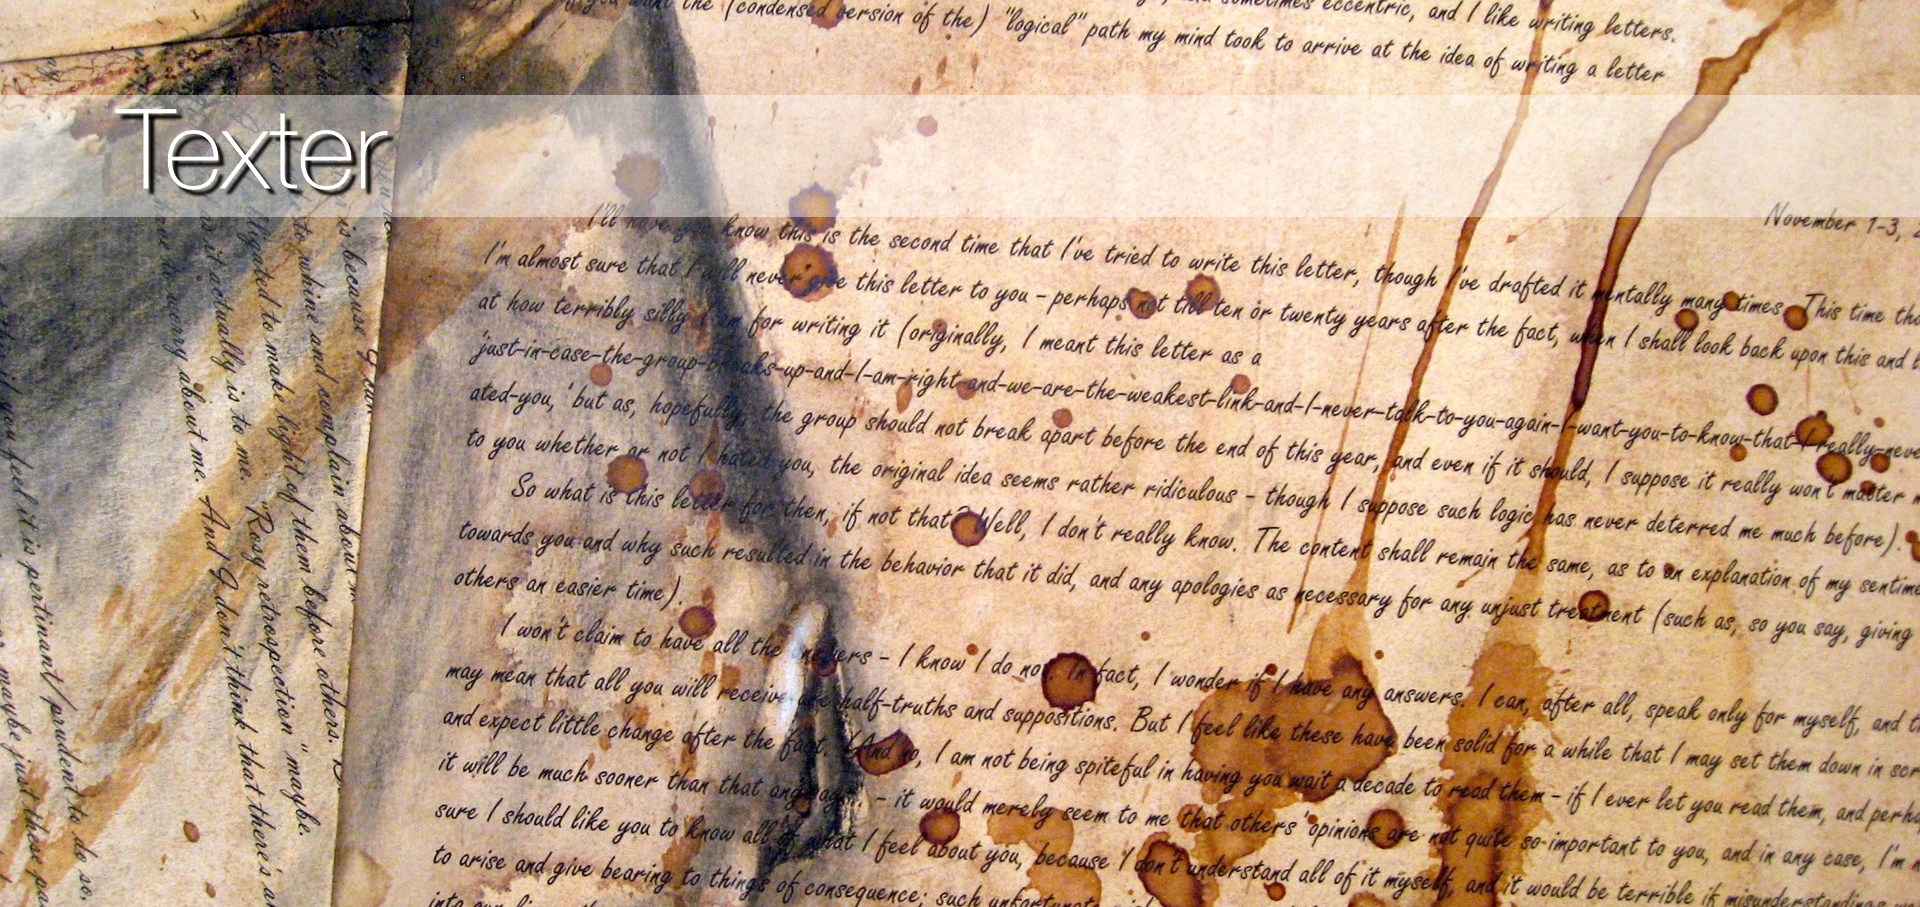 you want the (condensed version of the) "logical" path my mind took to arrive at the idea of writing a letter
sometimes eccentric, and I like writing letters.
Texter
November 1-3,
I'll have you know this is the second time that I've tried to write this letter, though I've drafted it mentally many times. This time
I'm almost sure that I will never give this letter to you - perhaps not till ten or twenty years after the fact, when I shall look back upon this and
at how terribly silly I am for writing it (originally, I meant this letter as a
'just-in-case-the-group-breaks-up-and-I-am-right-and-we-are-the-weakest-link-and-I-never-talk-to-you-again-I-want-you-to-know-that-I-really-never
ated-you,' but as, hopefully, the group should not break apart before the end of this year, and even if it should, I suppose it really won't matter
to you whether or not I hated you, the original idea seems rather ridiculous - though I suppose such logic has never deterred me much before).
So what is this letter for then, if not that? Well, I don't really know. The content shall remain the same, as to an explanation of my
towards you and why such resulted in the behavior that it did, and any apologies as necessary for any unjust treatment (such as, so you say, giving
others an easier time).
I won't claim to have all the answers - I know I do not. In fact, I wonder if I have any answers. I can, after all, speak only for myself, and
may mean that all you will receive are half-truths and suppositions. But I feel like these have been solid for a while that I may set them down in
and expect little change after the fact. (And no, I am not being spiteful in having you wait a decade to read them - if I ever let you read them, and
it will be much sooner than that anyways - it would merely seem to me that others' opinions are not quite so important to you, and in any case, I'm
sure I should like you to know all of what I feel about you, because I don't understand all of it myself, and it would be terrible if misunderstandings
to arise and give bearing to things of consequence; such unfortunate
is because I can
to whine and complain about
to make light of them before others.
it actually is to me. "Rosy retrospection" maybe.
here to worry about me. And I don't think that there's
you feel it is pertinant/prudent to do so.
or maybe just these